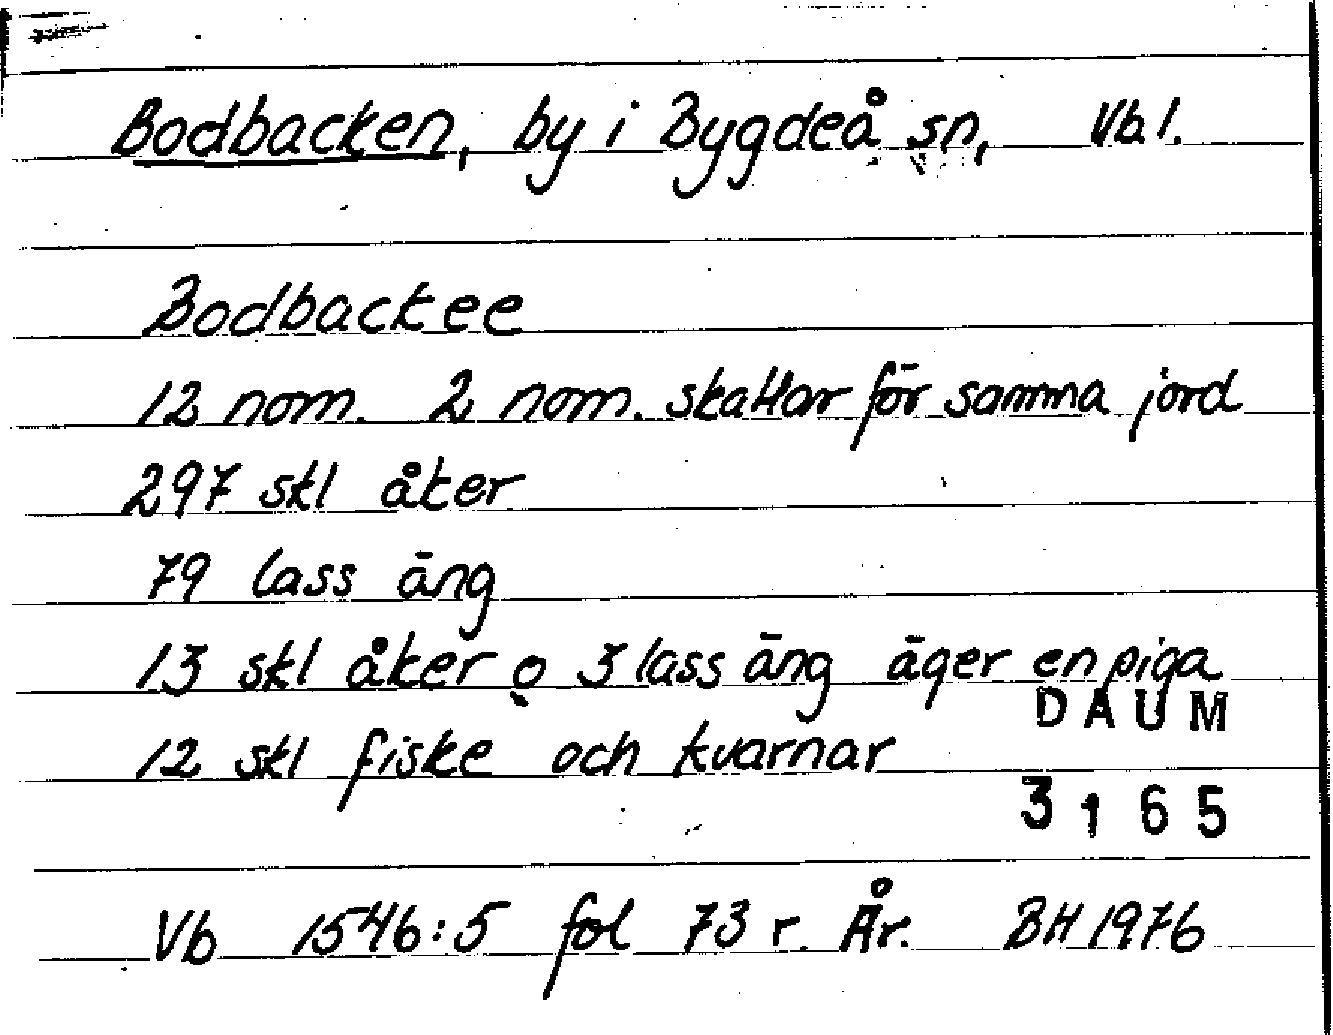 Bodbacken, by i Bygdeå sn, Vbl.
Bodbackee
12 nom. 2 nom. skattar för samma jord
297 skl åker
79 lass äng
13 skl åker o 3 lass äng äger en piga
DAUM
12 skl fiske och kvarnar
3165
Vb 1546:5 fol 73 r. År. BH 1976